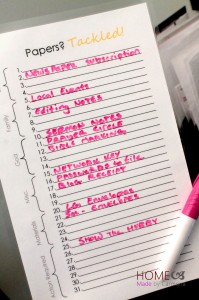 Papers? Tackled!
Family
1. Newspaper Subscription
2.
3.
4.
5. Local Events
6. Editing Notes
7.
8.
God
9. Sermon Notes
10. Prayer Circle
11. Bible Marking
12.
13.
14.
Misc.
15. Network Key
16. Passwords to file
17. Blog Receipt
18.
19.
Household
20. LG. Envelopes
21. Sm. Envelopes
22.
23.
Action Required
24. Show the Hubby
25.
26.
27.
28.
29.
30.
31.
HOME
Made by Carmona